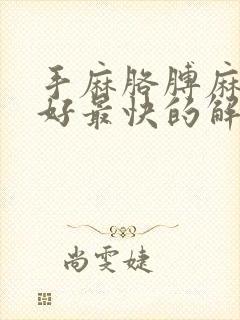 手麻胳膊麻
好最快的解
尚雯婕